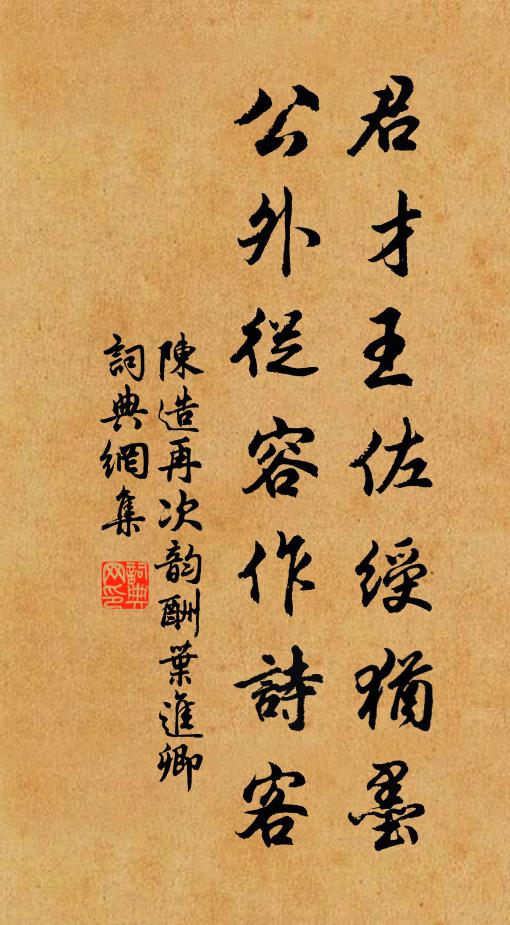 君才王佐綬猶墨
公外從容作詩客
陳造再次韵酬葉進卿
詞典網集
詞典网印